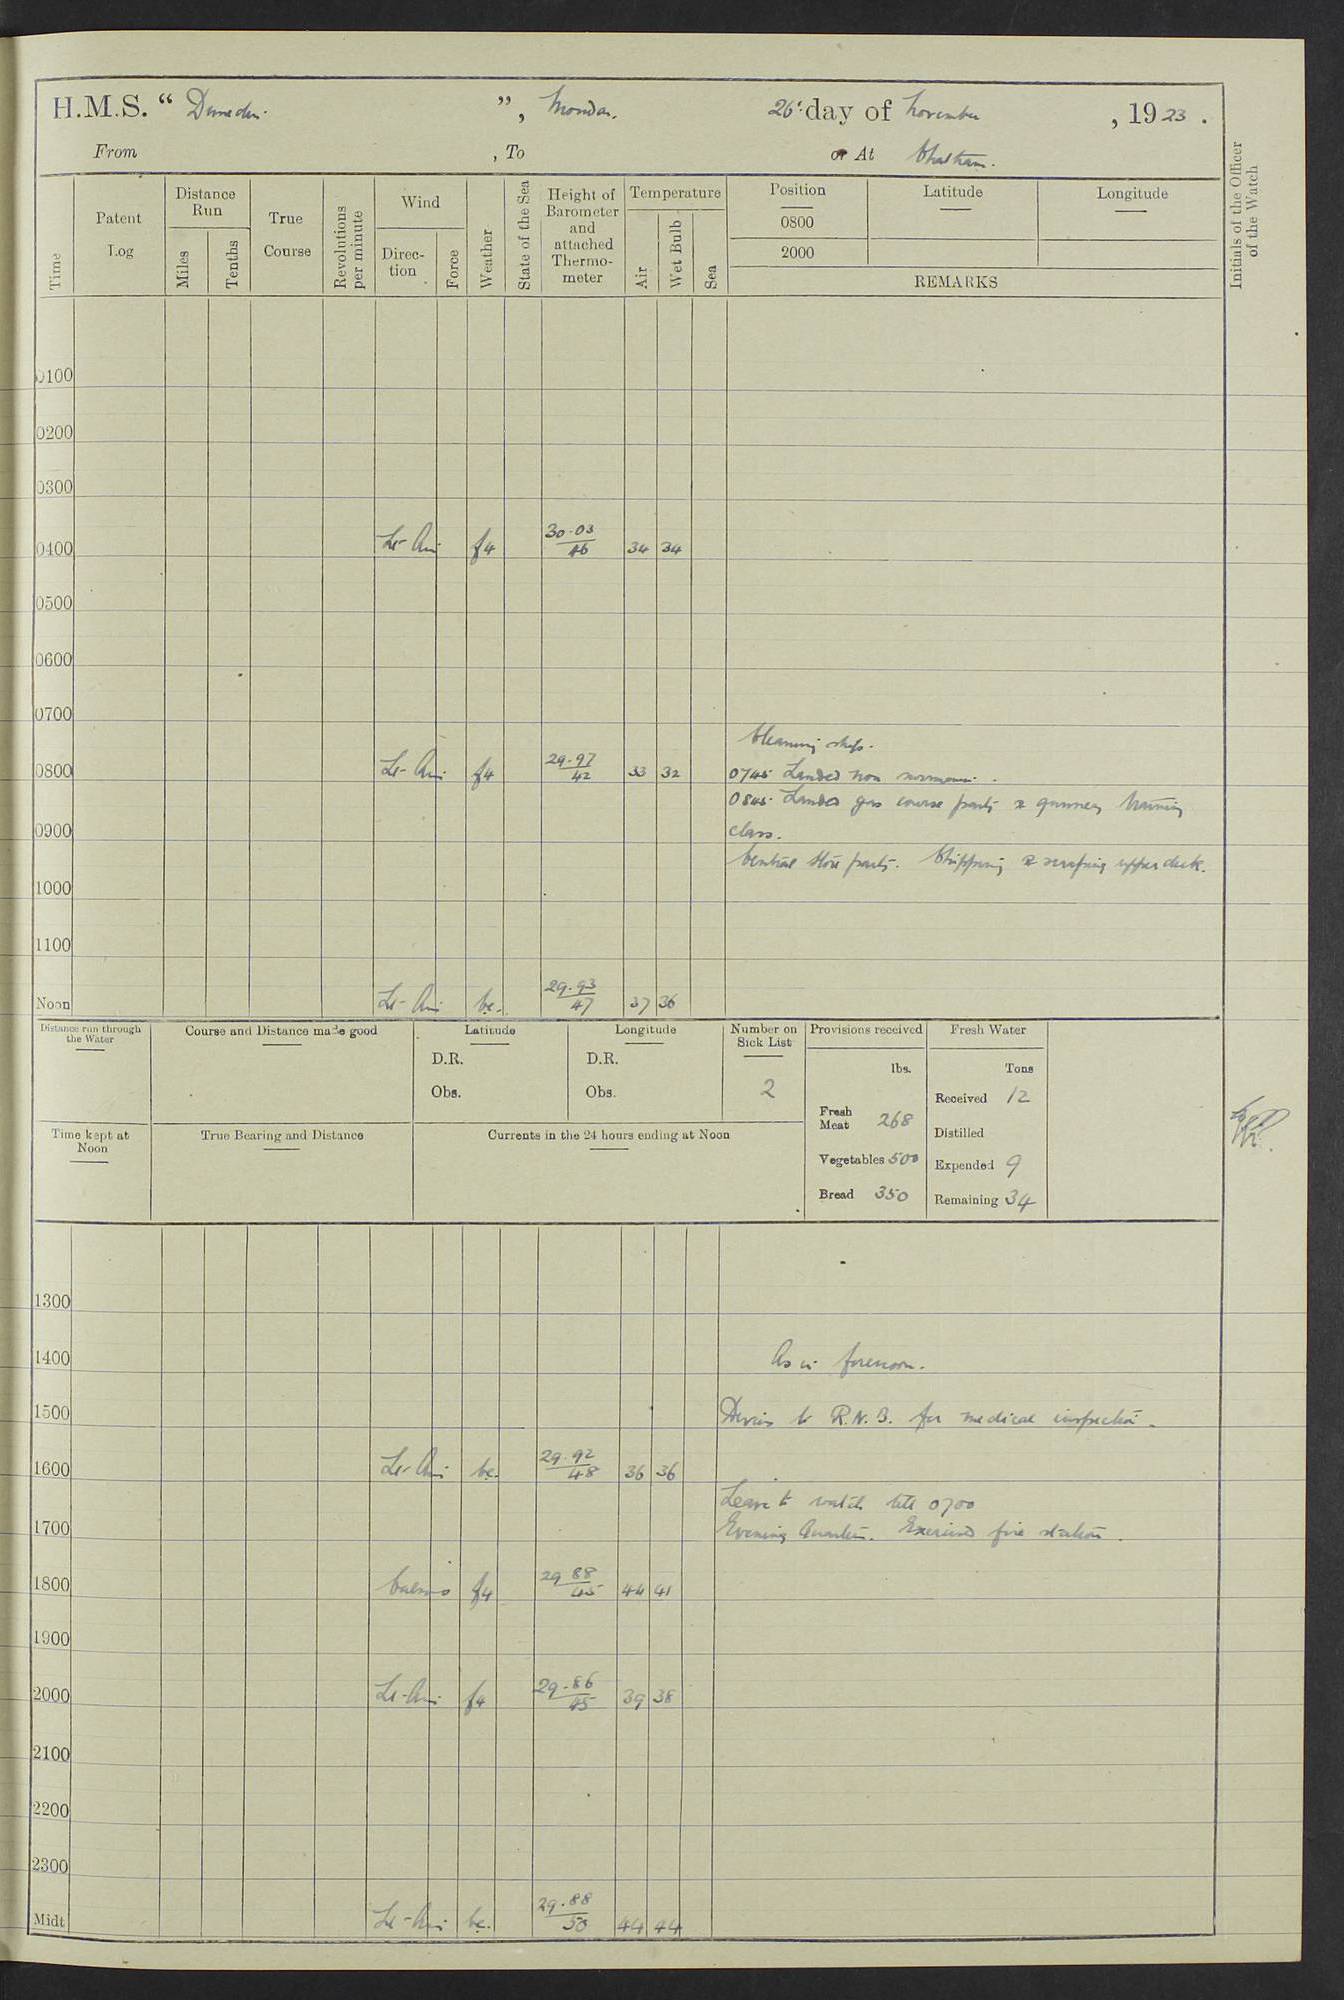 H.M.S. “ Dunedin. ”, Monday. 26th day of November, 1923.
From , To or At Chatham.
Initials of the Officer of the Watch
Time
Patent Log
Distance Run
Miles
Tenths
True Course
Revolutions per minute
Wind
Direction
Force
Weather
State of the Sea
Height of Barometer and attached Thermometer
Temperature
Air
Wet Bulb
Sea
Position Latitude Longitude
0800
2000
REMARKS
0100
0200
0300
0400 Lt Airs f4 30.03/46 34 34
0500
0600
0700
Cleaning ship.
0800 Lt Airs f4 29.97/42 33 32 0745 Landed non swimmers.
0845 Landed gas course party & gunnery training
0900 class.
Central store party. Chipping & scraping upper deck.
1000
1100
Noon Lt Airs bc. 29.93/47 37 36
Distance run through the Water
Course and Distance made good
Latitude
D.R.
Obs.
Longitude
D.R.
Obs.
Number on Sick List
2
Provisions received
lbs.
Fresh Meat 268
Vegetables 500
Bread 350
Fresh Water
Tons
Received 12
Distilled
Expended 9
Remaining 34
Time kept at Noon
True Bearing and Distance
Currents in the 24 hours ending at Noon
1300
1400 As in forenoon.
1500 to R.N.B. for medical inspection.
1600 Lt Airs bc. 29.92/48 36 36
Leave to watch till 0700
1700 Evening Quarters. Exercised fire stations.
1800 Calms f4 29 88/45 44 41
1900
2000 Lt Airs f4 29.86/45 39 38
2100
2200
2300
Midt Lt Airs bc. 29.88/50 44 44